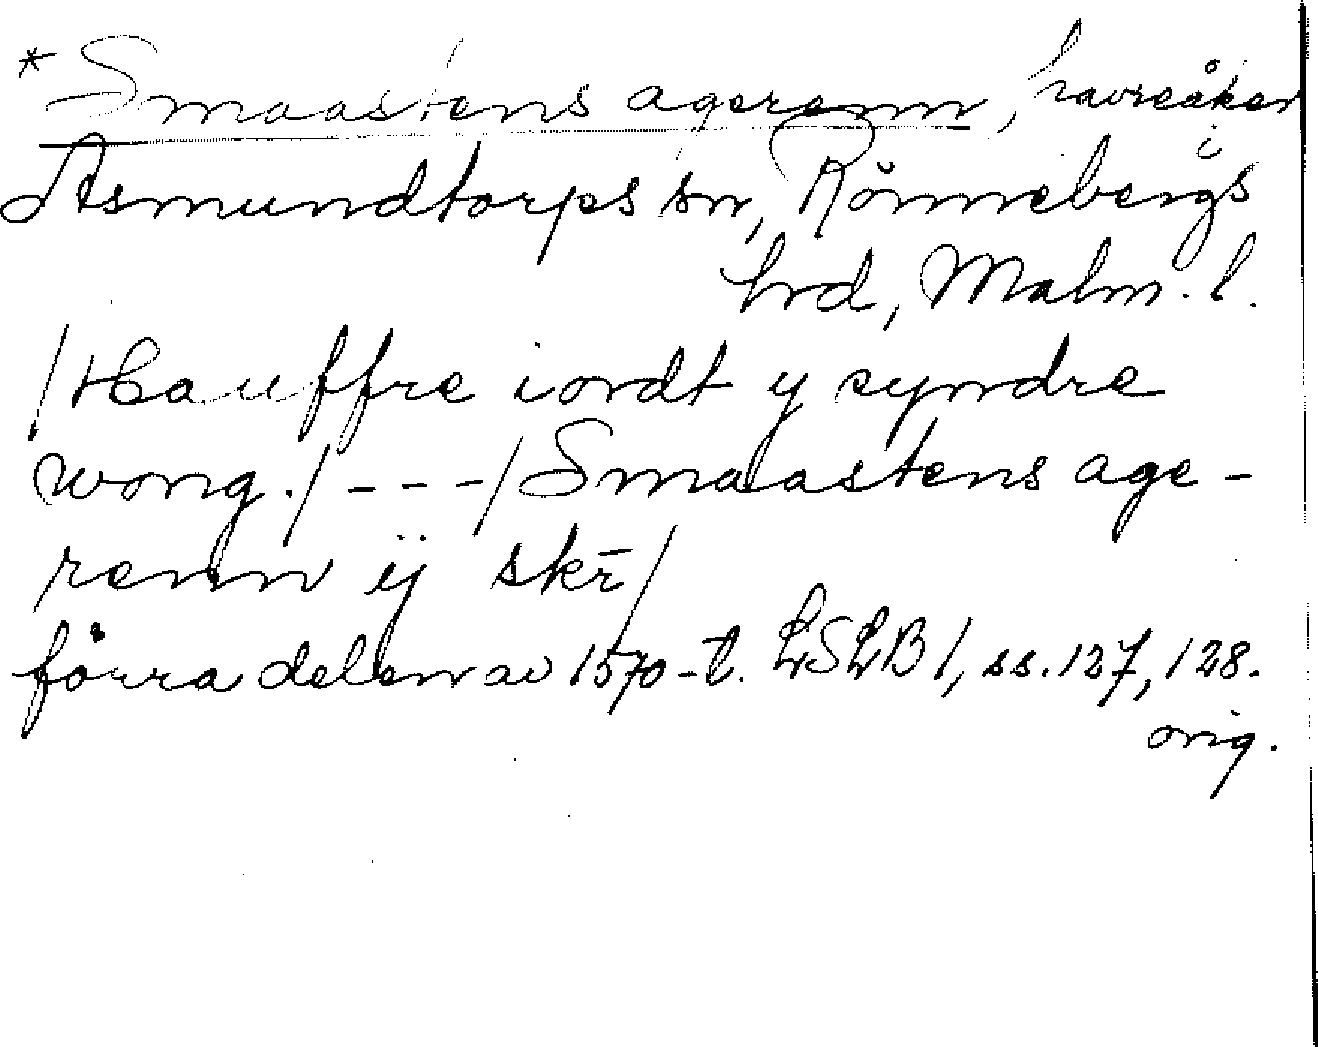 *Smaastens agerenn, havreåker
i
Asmundtorps sn, Rönnebergs
hrd, Malm. l.
/Hauffre iordt y syndre
wong./---/Smaastens age-
renn ÿ skr̄/
förra delen av 1570-t. LSLB 1, ss. 127, 128.
orig.